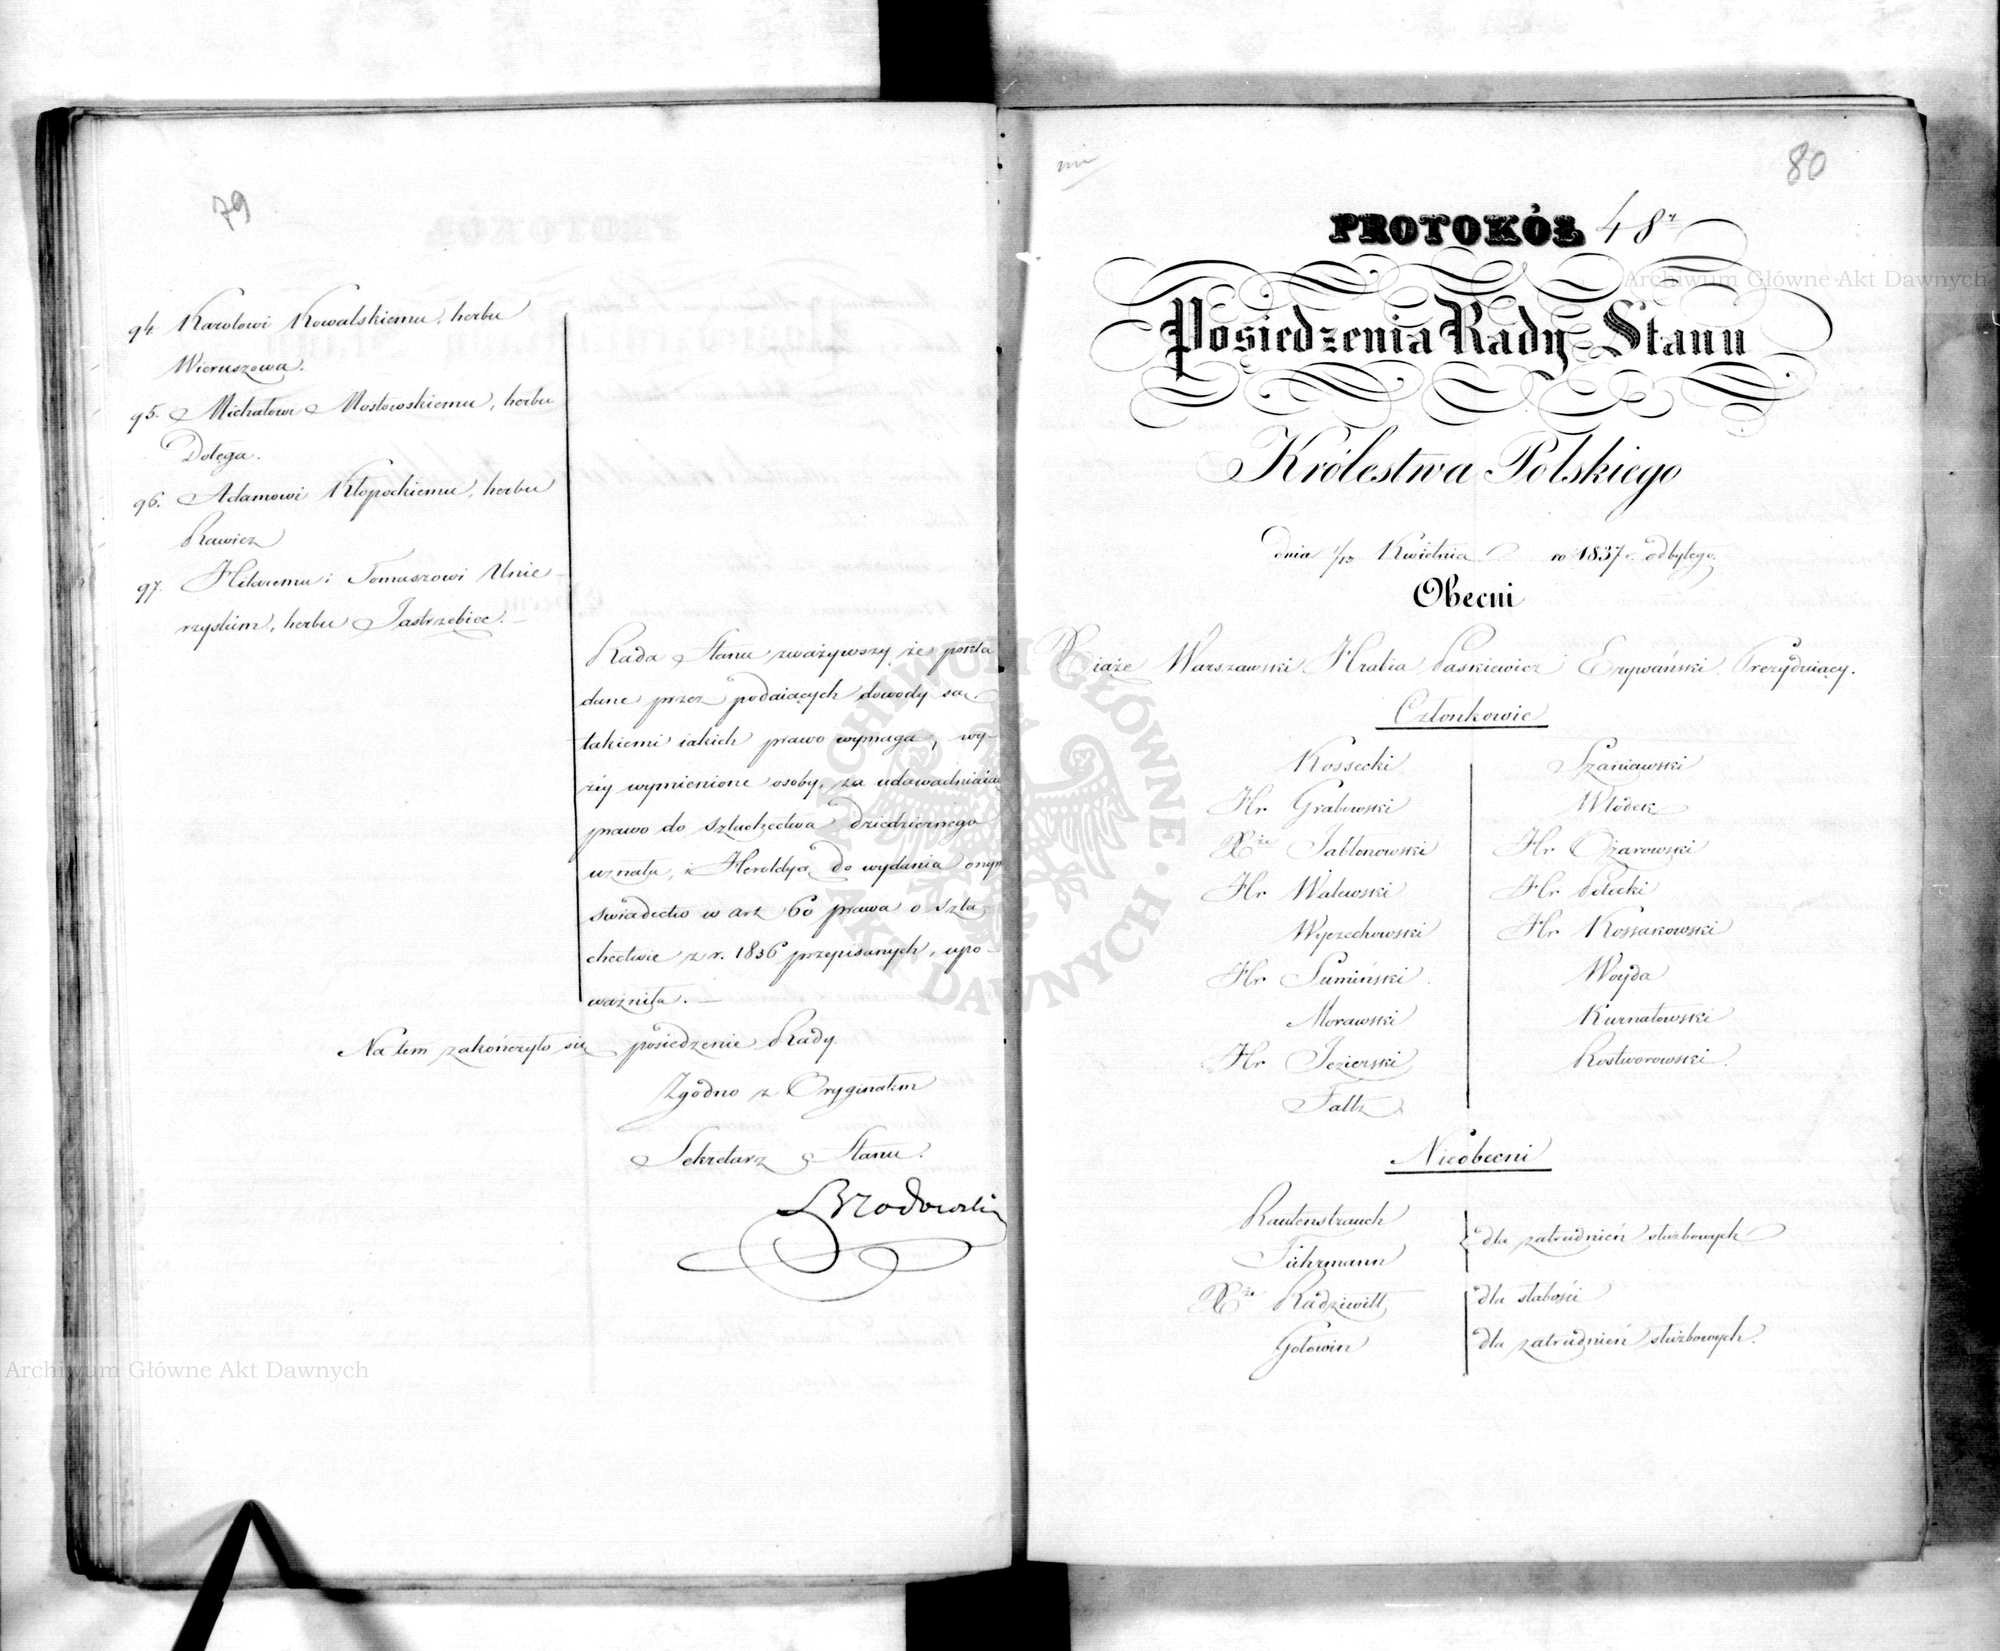 79
94. Karolowi Kowalskiemu, herbu
Wieruszowa.
95. Michałowi Mostowskiemu, herbu
Dołęga.
96. Adamowi Kłopockiemu, herbu
Rawicz
97. Hilaremu i Tomaszowi Unie-
rzyskim, herbu Jastrzebiec.
Rada Stanu zważywszy że pokła
dane przez podaiących dowody są
takiemi iakich prawo wymaga, wy-
żéy wymienione osoby, za udowadniaiące
prawo do szlachectwa dziedzicznego
uznała, i Heroldyą do wydania onym
świadectw w art 60 prawa o szla-
chectwie z r. 1836 przepisanych, upo-
ważniła.
Na tem zakończyło się posiedzenie Rady.
Zgodno z Oryginałem
Sekretarz Stanu.
Brodowski
80
PROTOKÓŁ 48r
Posiedzenia Rady Stanu
Królestwa Polskiego
dnia 1/13 Kwietnia ro 1837 r. odbytego.
Obecni
Xiąże Warszawski Hrabia Paskiewicz Erywański Prezyduiący.
Członkowie
Kossecki
Hr Grabowski
Xże Jabłonowski
Hr Walewski
Wyczechowski
Hr Sumiński
Morawski
Hr Jezierski
Faltz
Szaniawski
Włodek
Hr Ożarowski
Hr Potocki
Hr Kossakowski
Woyda
Kurnatowski
Rostworowski.
Nieobecni
Rautenstrauch
Fuhrmann
dla zatrudnień służbowych
Xże Radziwiłł dla słabości
Gołowin dla zatrudnień służbowych.
Archiwum Główne Akt Dawnych
ARCHIWUM GŁÓWNE AKT DAWNYCH
Archiwum Główne Akt Dawnych